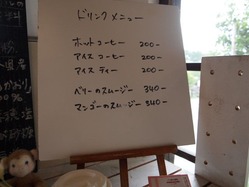 ドリンクメニュー
ホットコーヒー 200-
アイスコーヒー 200-
アイスティー 200-
ベリーのスムージー 340-
マンゴーのスムージー 340-